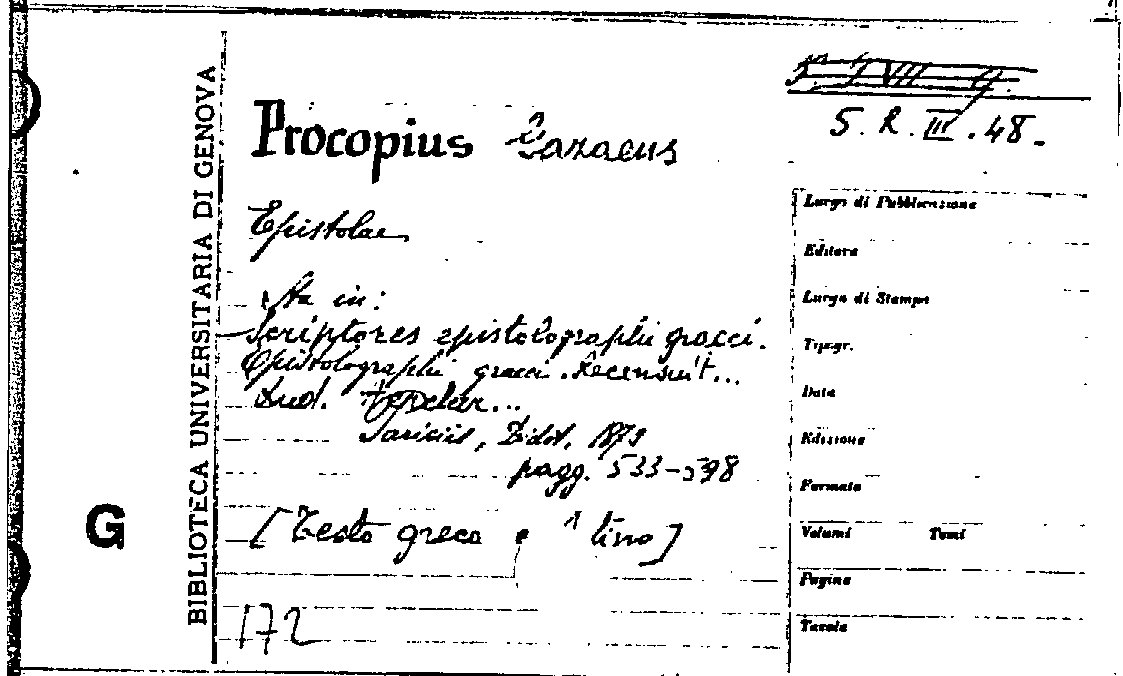 S. R. III. 48.
Procopius Gazaeus
Epistolae
Sta in:
Scriptores epistolographi graeci.
Epistolographi graeci. Recensuit...
Parisiis, Didot, 1873
pagg. 533-598
[Testo greco e latino]
172
BIBLIOTECA UNIVERSITARIA DI GENOVA
G
Luogo di Pubblicazione
Editore
Luogo di Stampa
Tipogr.
Data
Edizione
Formato
Volumi Tomi
Pagine
Tavole